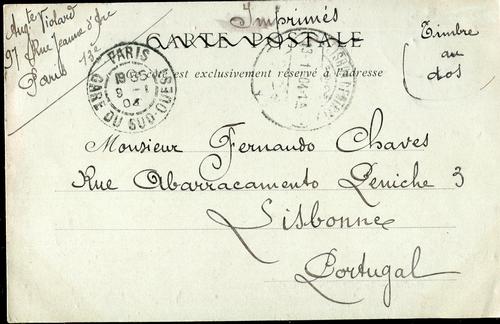 Augte Violard
97 Rue Jeanne d'Arc
Paris 13e
Imprimés
CARTE POSTALE
Ce côté est exclusivement réservé à l'adresse
Timbre
au
dos
PARIS
19 35
9 - 1
04
GARE DU SUD-OUEST
Monsieur Fernando Chaves
Rue Abarracamento Peniche 3
Lisbonne
Portugal